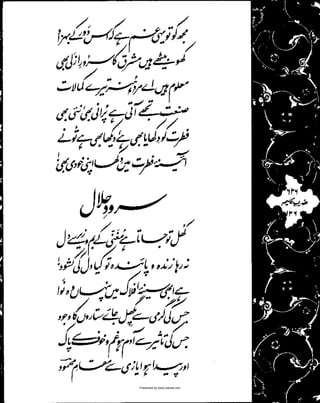 مجھ کو تو یہی غم ہے کہ اس دور کے بہزاد
کھو بیٹھے ہیں مشرق کا سرورِ ازلی بھی
معلوم ہیں اے مردِ ہنر تیرے کمالات
صنعت تجھے آتی ہے پرانی بھی، نئی بھی
فطرت کو دکھایا بھی ہے، دیکھا بھی ہے تو نے
آئینۂ فطرت میں دکھا اپنی خودی بھی!
سرودِ حلال
کھل تو جاتا ہے مغنی کے بم و زیر سے دل
نہ رہا زندہ و پائندہ تو کیا دل کی کشود!
ہے ابھی سینۂ افلاک میں پنہاں وہ نوا
جس کی گرمی سے پگھل جائے ستاروں کا وجود
جس کی تاثیر سے آدم ہو غم و خوف سے پاک
اور پیدا ہو ایازی سے مقامِ محمود!
ضربِ کلیم